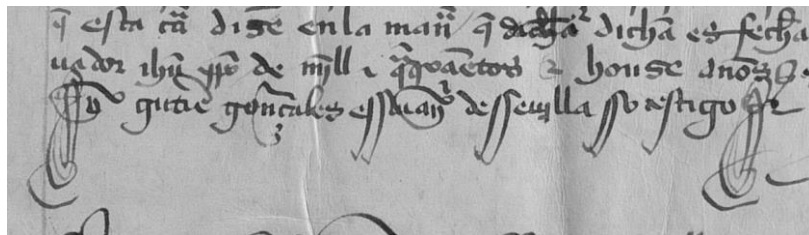 q̃ esta cr̃a diz̃e en la man̄a q̃ dicha dicha es fecha
uador ihũ xp̃o de mjll e q̃troçientos e honse años
yo gutie gonçales essciuan̄o de seuilla so testigo